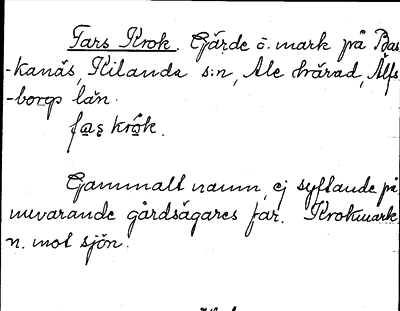 Fars Krok. Gärde o. mark på Bas
-kanäs, Kilanda s:n, Ale härad, Älfs
-borgs län.
fas krok.
Gammalt namn, ej syftande på
nuvarande gårdsägares far. Krokmark
n. mot sjön.